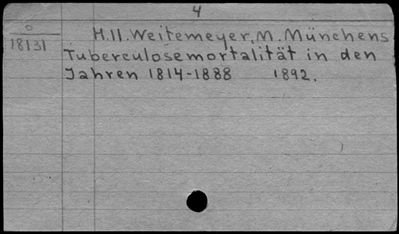 4
0
18131
H.11. Weitemeyer, M. Münchens
Tuberculosemortalität in den
Jahren 1814-1888 1892.